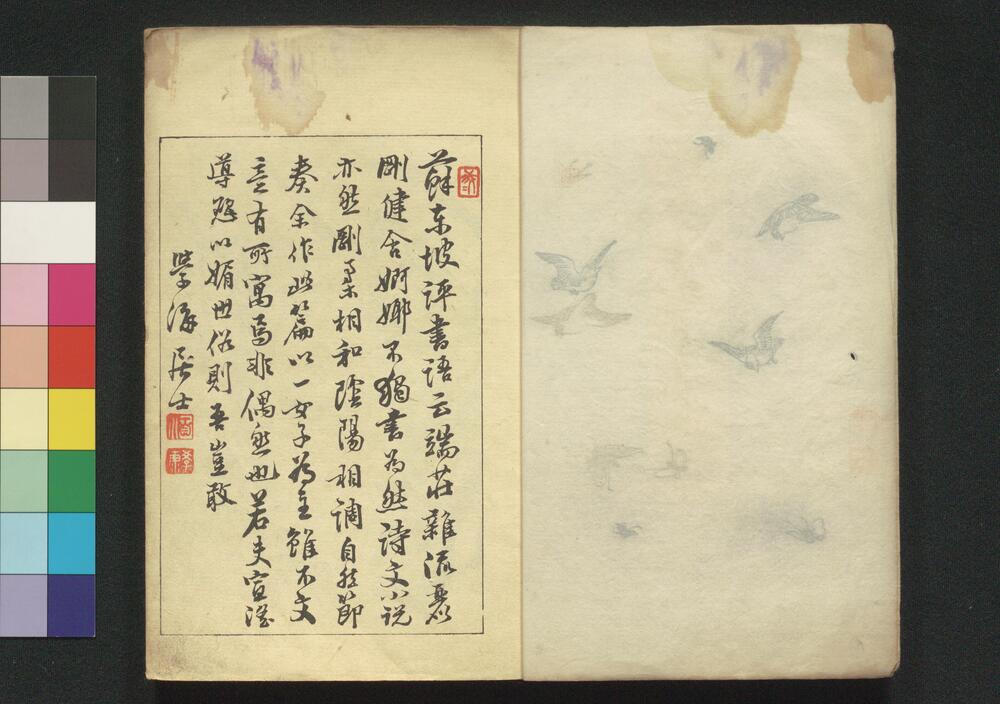 蘇東坡評書語云端荘雜流麗
剛健含婀娜不獨書為然詩文小説
亦然剛柔相和陰陽相調自然節
奏余作此篇以一女子為主雖不文
言有所寓焉非偶然也若夫宣滛
導慾以媚世俗則吾豈敢
學海居士